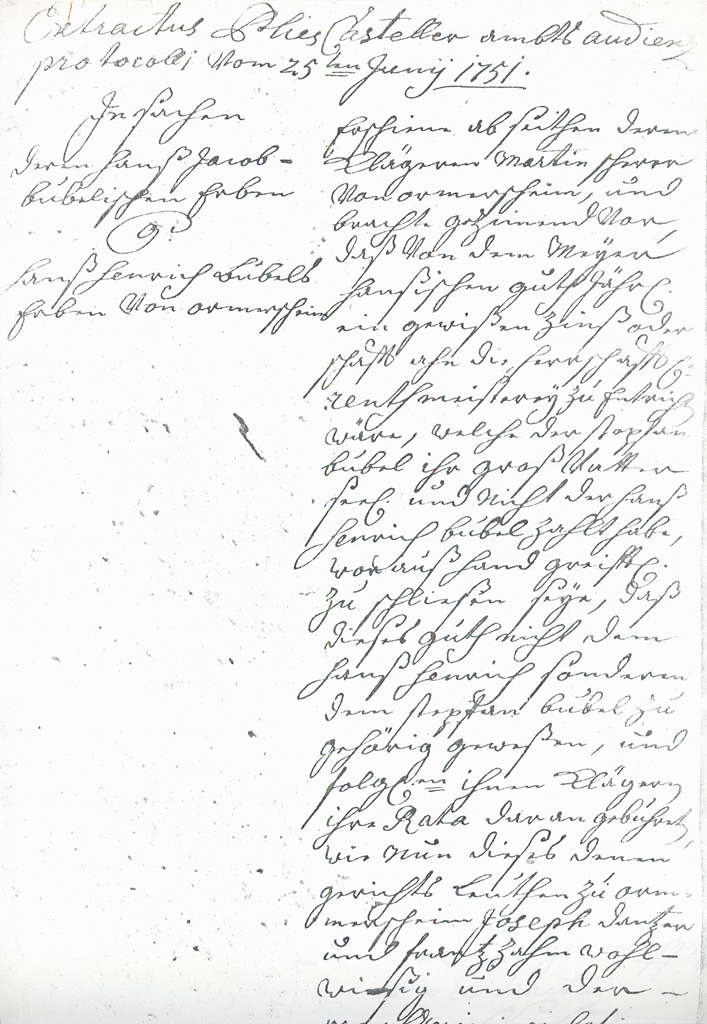 Extractus Blies Casteller ambts audienz
protocolli Vom 25ten Junij 1751.
In sachen
deren Hanß Jacob-
bubelischen Erben
Hanß Henrich Bubels
Erben Von ormersheim
Erschiene ab seithen deren
Klägeren Martin scherer
Von ormersheim, und
brachte gezimend Vor,
daß Von dem Meyer
Hansischen guth Jährl.
ein gewißen Zinß oder
schafft ahn die Herrschafftl.
renthmeisterey zu Entrich
wäre, welche der stephan
bubel ihr groß Vatter
seel. und nicht der Hanß
Henrich bubel zahlt habe,
worauß hand greiffl.
zu schliesen seye, daß
dieses guth nicht dem
Hanß Henrich sonderen
dem stephan bubel zu
gehörig geweßen, und
folglen ihnen Klägern
ihre Rata daran gebühret,
wie Nun dieses denen
gerichts Leuthen zu orm-
mersheim Joseph dantzer
und frantz Zahm wohl-
wißig und der-